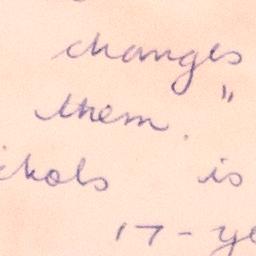 changes
them."
ckols is
17-ye